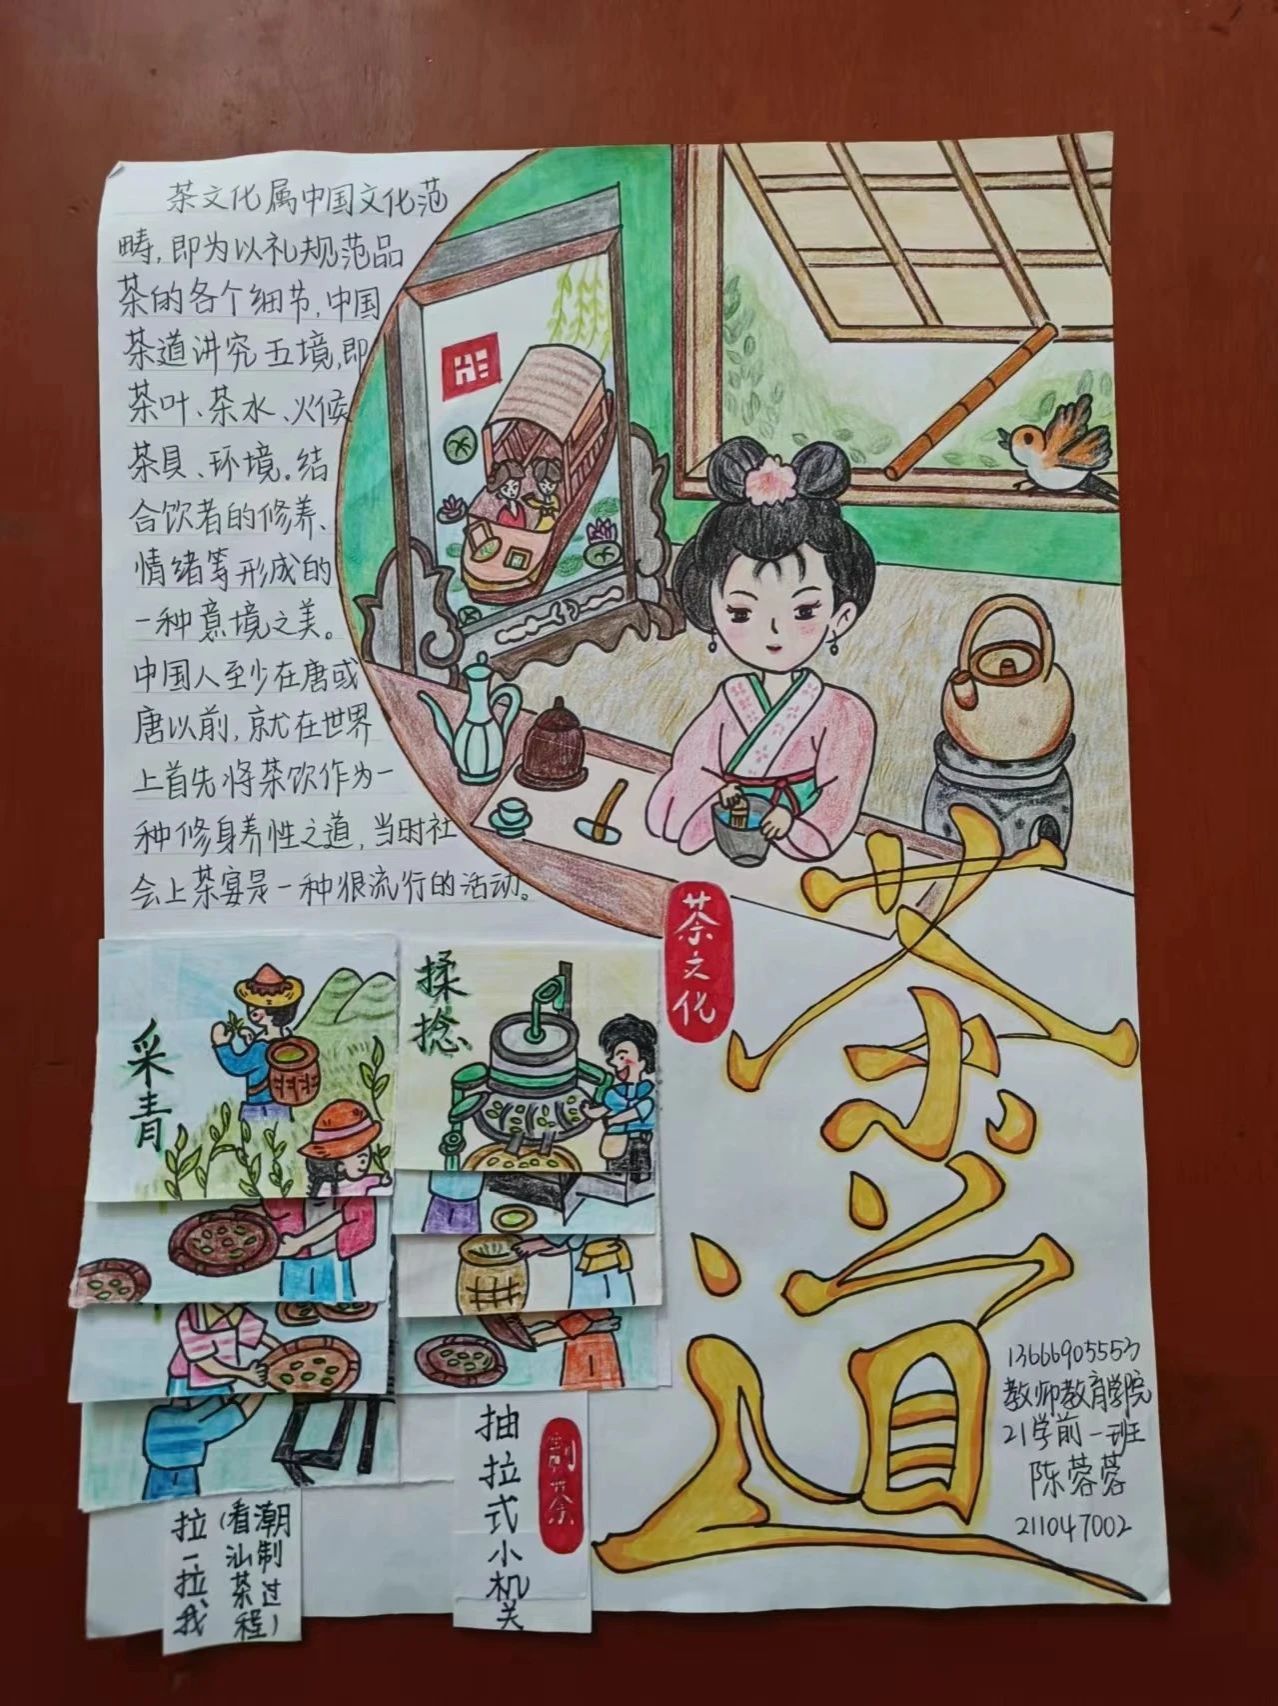 茶文化属中国文化范
畴,即为以礼规范品
茶的各个细节,中国
茶道讲究五境,即
茶叶、茶水、火候
茶具、环境。结
合饮者的修养、
情绪等形成的
一种意境之美。
中国人至少在唐或
唐以前,就在世界
上首先将茶饮作为一
种修身养性之道,当时社
会上茶宴是一种很流行的活动。
茶文化
茶道
采青
揉捻
制茶
抽拉式小机关
拉一拉我
(看汕茶
潮制过程)
13666905553
教师教育学院
21学前一班
陈蓉蓉
211047002